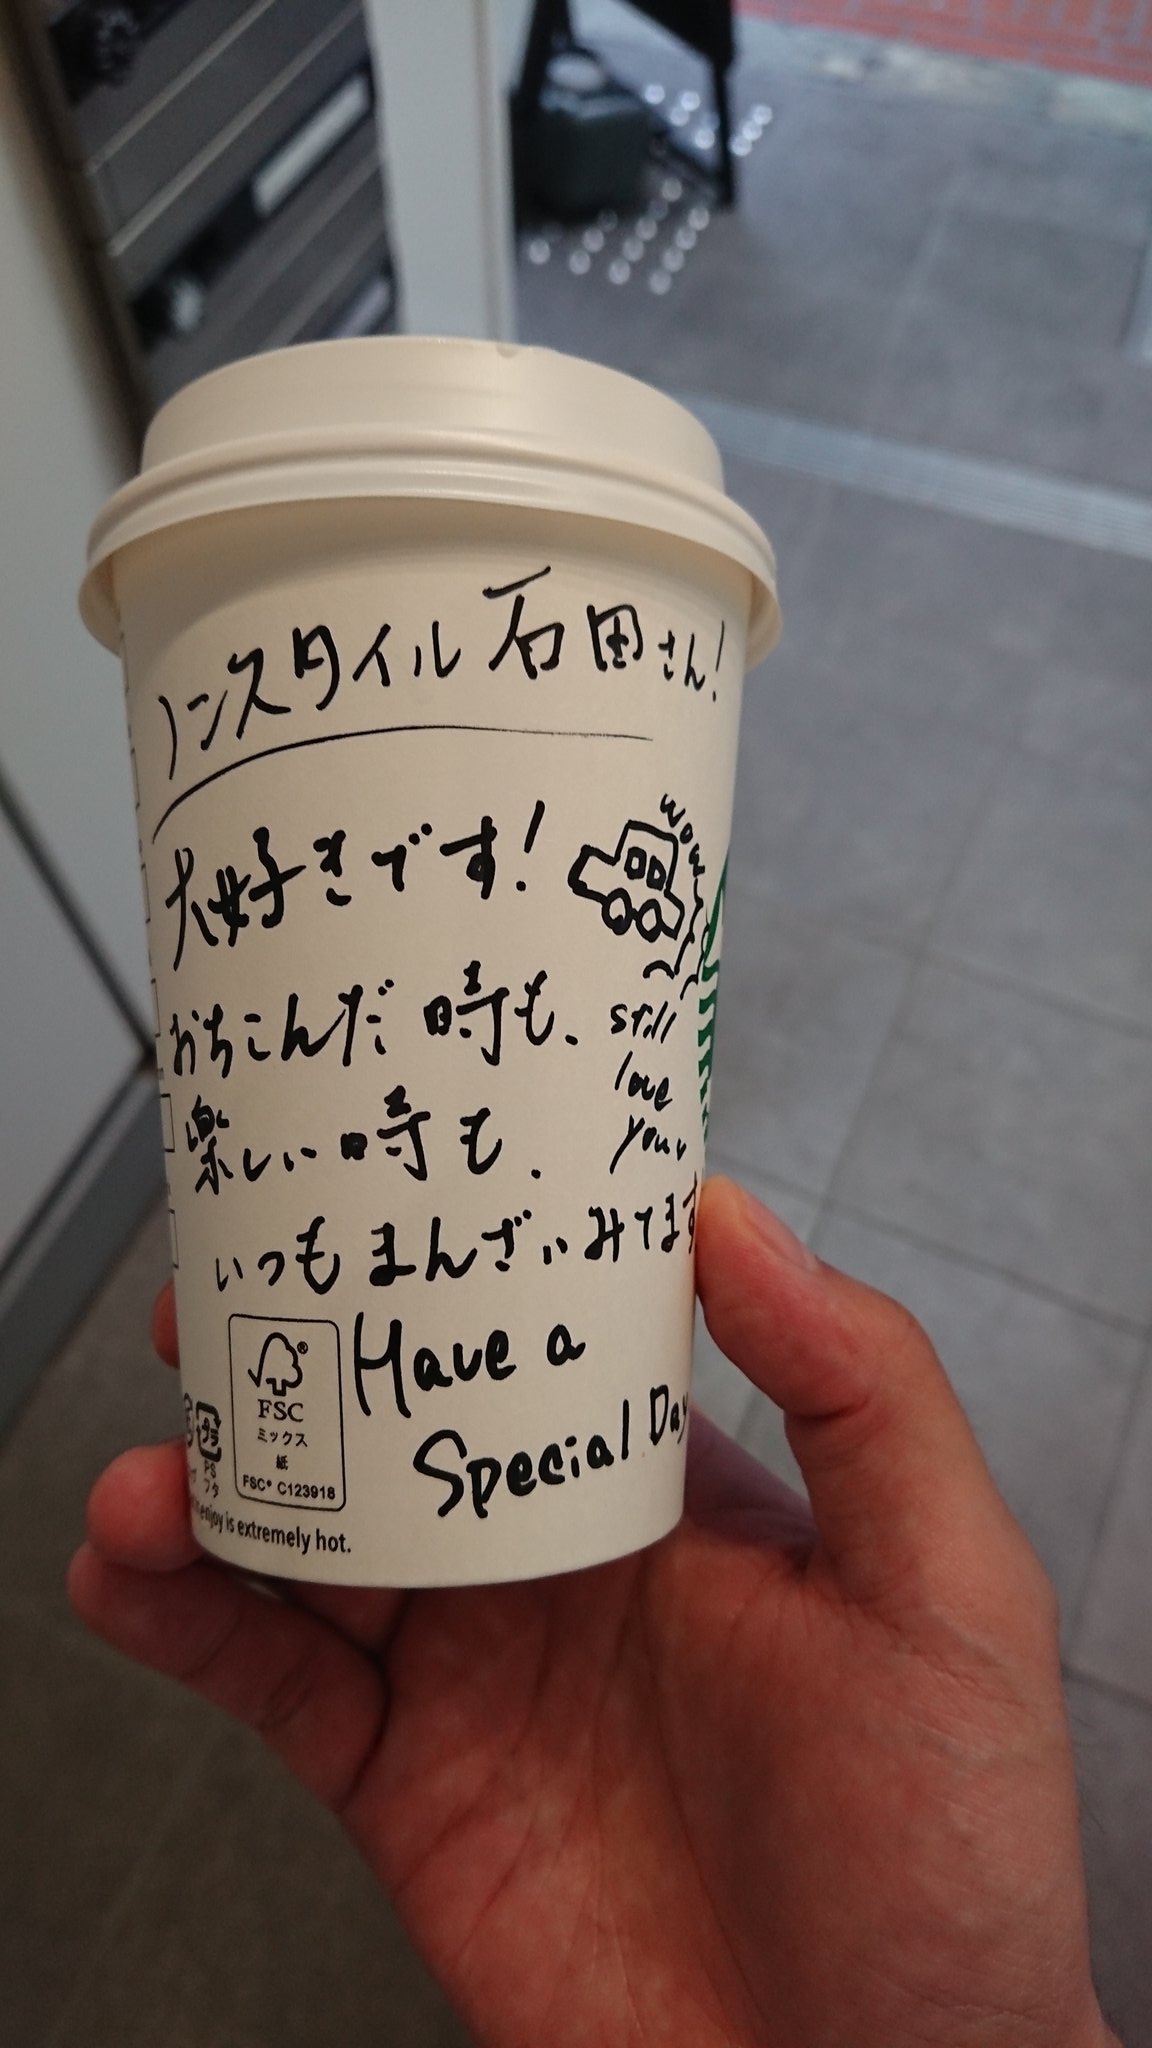 ノンスタイル石田さん!
大好きです!
wow
おちこんだ時も、
still
love
you
楽しい時も、
いつもまんざいみてます
Have a
Special Day
FSC®
ミックス
紙
FSC® C123918
プラ
PS
フタ
enjoy is extremely hot.